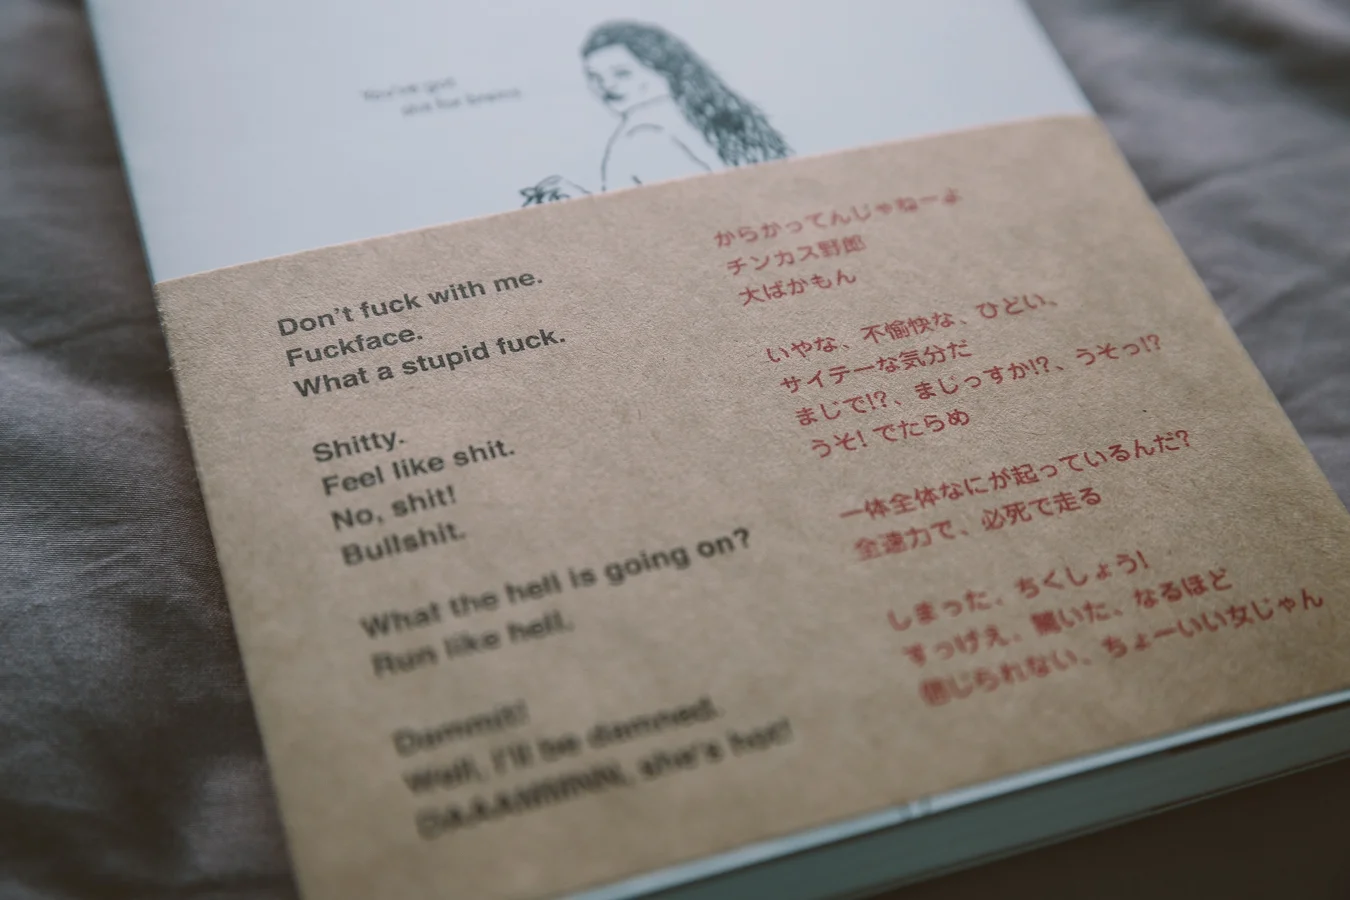 You've got
shit for brains
Don't fuck with me.
Fuckface.
What a stupid fuck.
Shitty.
Feel like shit.
No, shit!
Bullshit.
What the hell is going on?
Run like hell.
Dammit!
Well, I'll be damned.
DAAAMMMN, she's hot!
からかってんじゃねーよ
チンカス野郎
大ばかもん
いやな、不愉快な、ひどい、
サイテーな気分だ
まじで!?、まじっすか!?、うそっ!?
うそ! でたらめ
一体全体なにが起っているんだ?
全速力で、必死で走る
しまった、ちくしょう!
すっげえ、驚いた、なるほど
信じられない、ちょーいい女じゃん